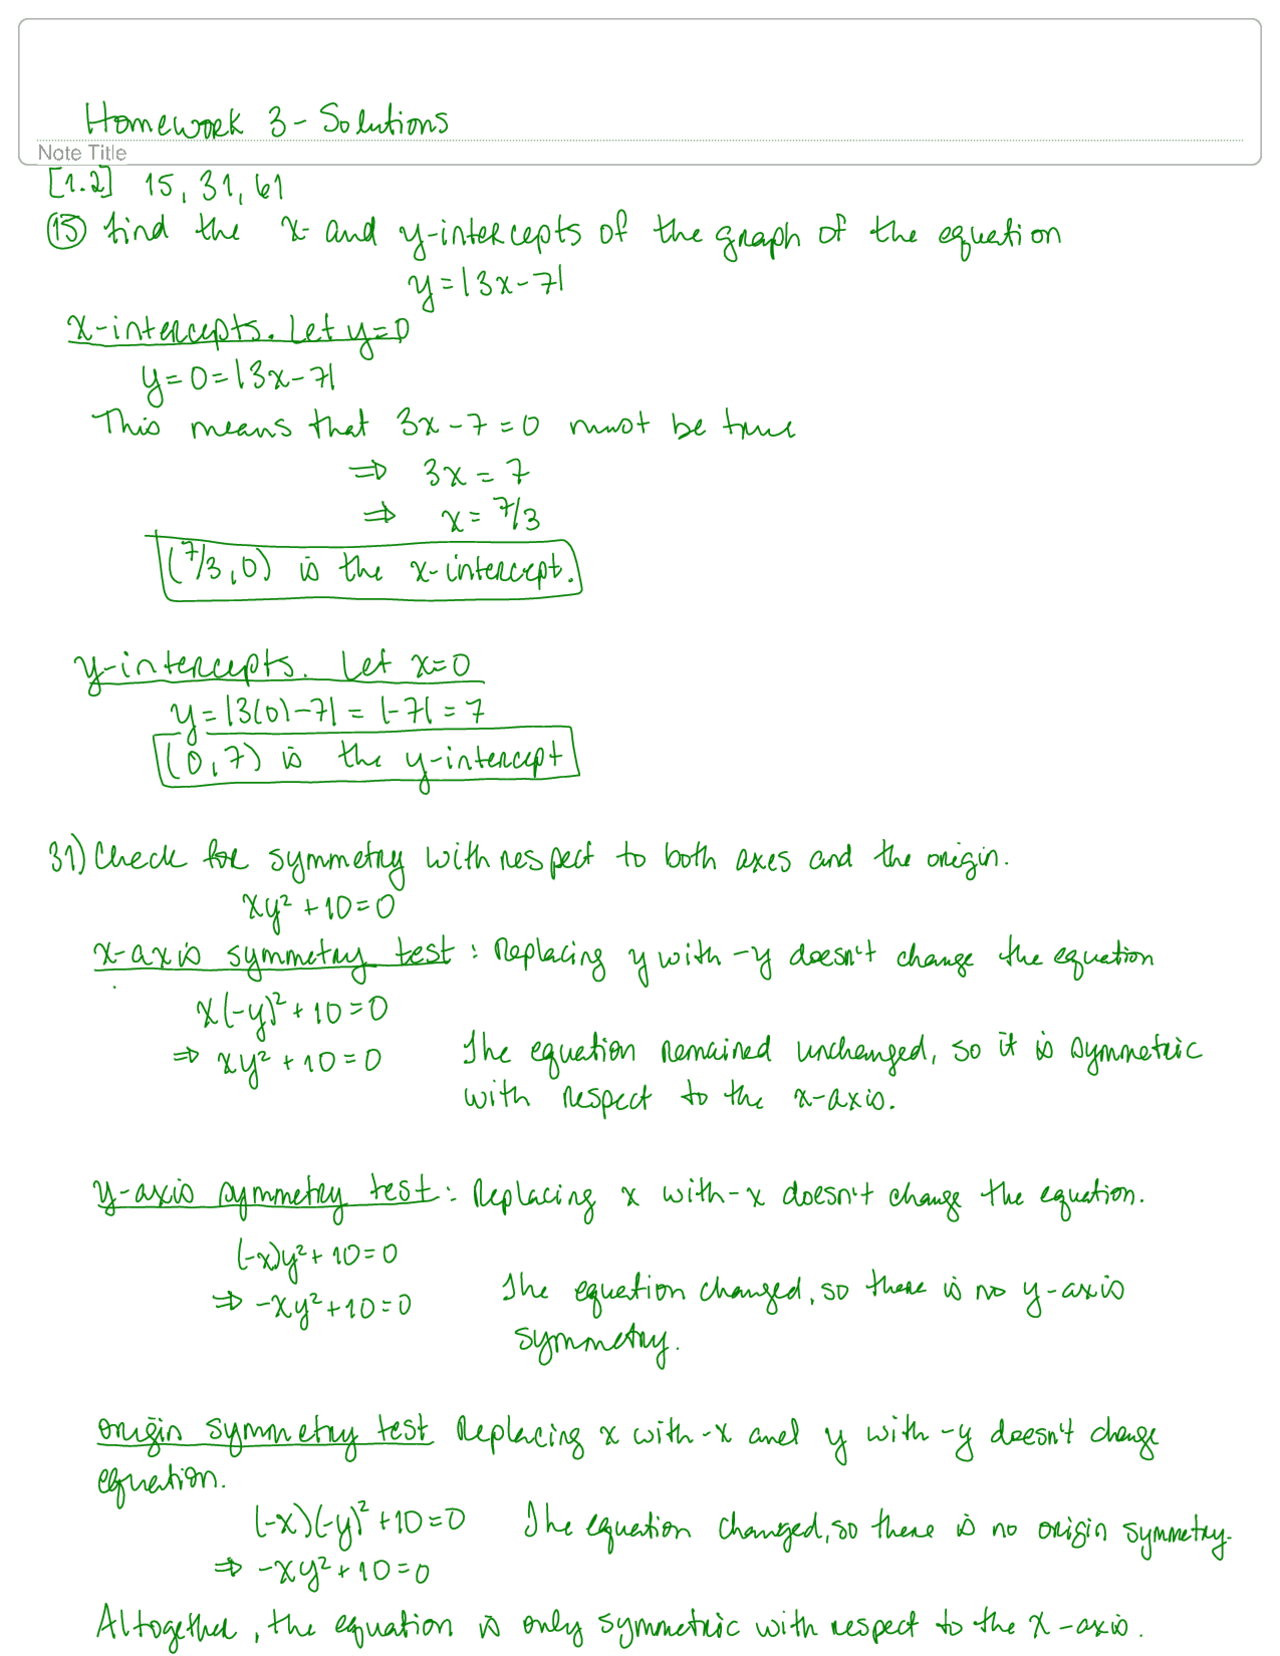 Homework 3 - Solutions
Note Title
[1.2] 15, 31, 61
(15) find the x- and y-intercepts of the graph of the equation
y = |3x - 7|
x-intercepts. Let y=0
y = 0 = |3x - 7|
This means that 3x - 7 = 0 must be true
⇒ 3x = 7
⇒ x = 7/3
(7/3, 0) is the x-intercept.
y-intercepts. Let x=0
y = |3(0) - 7| = |-7| = 7
(0, 7) is the y-intercept
31) Check for symmetry with respect to both axes and the origin.
xy² + 10 = 0
x-axis symmetry test : Replacing y with -y doesn't change the equation
x(-y)² + 10 = 0
⇒ xy² + 10 = 0 The equation remained unchanged, so it is symmetric
with respect to the x-axis.
y-axis symmetry test : Replacing x with -x doesn't change the equation.
(-x)y² + 10 = 0
⇒ -xy² + 10 = 0 The equation changed, so there is no y-axis
symmetry.
origin symmetry test Replacing x with -x and y with -y doesn't change
equation.
(-x)(-y)² + 10 = 0 The equation changed, so there is no origin symmetry.
⇒ -xy² + 10 = 0
Altogether, the equation is only symmetric with respect to the x-axis.